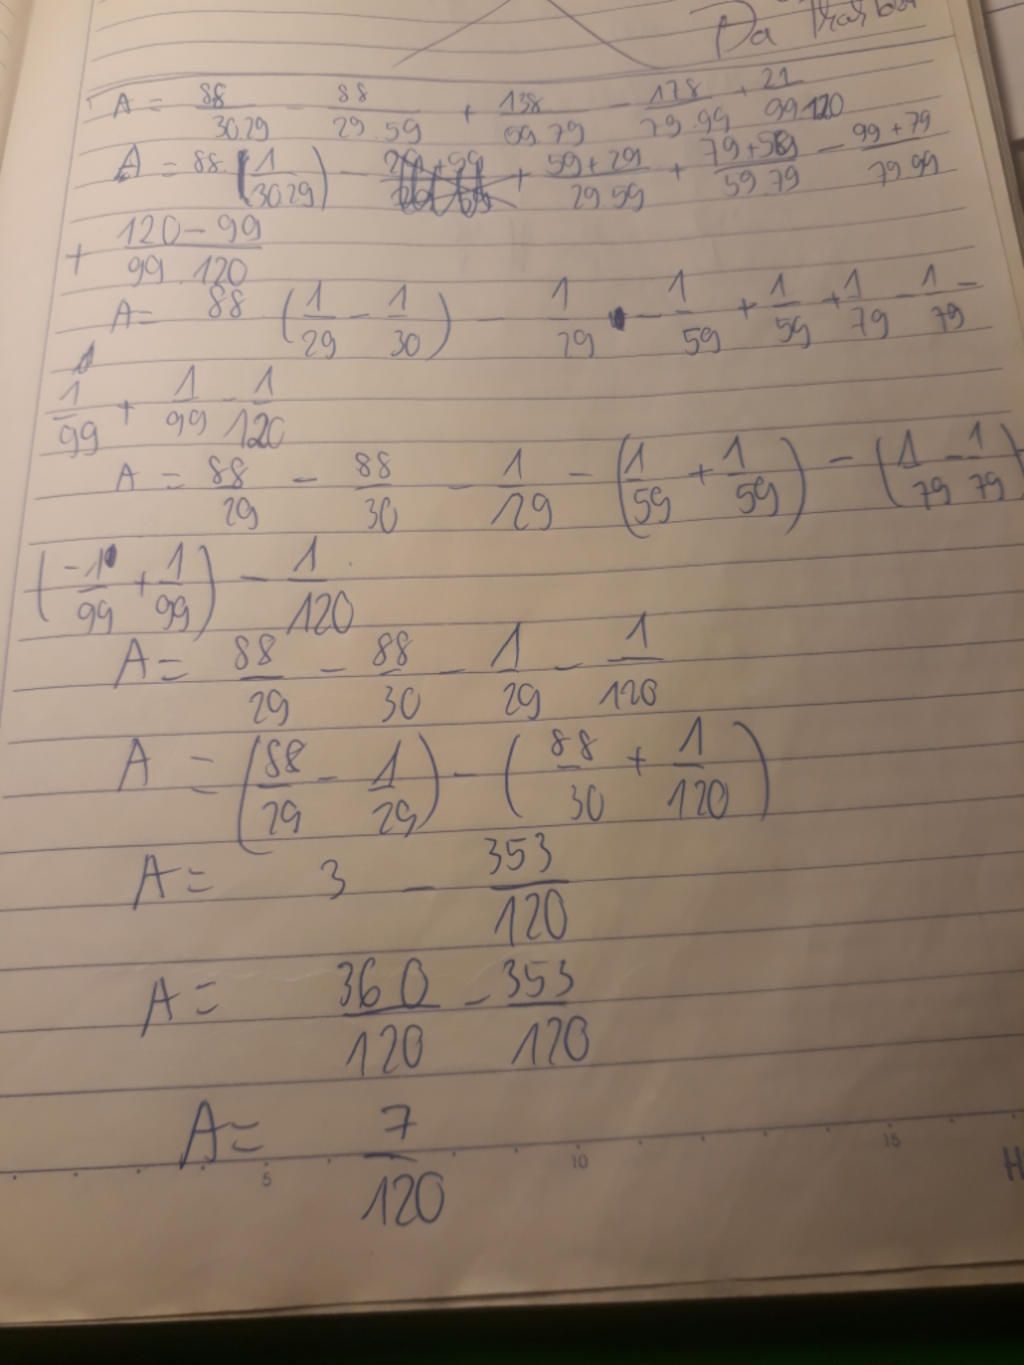 Da
A = 88/30.29 - 88/29.59 + 138/59.79 - 178/79.99 + 21/99.120
A = 88. (1/30.29) - + 59+29/29.59 + 79+59/59.79 - 99+79/79.99
+ 120-99/99.120
A= 88 (1/29 - 1/30) - 1/29 - 1/59 + 1/59 + 1/79 - 1/79 -
1/99 + 1/99 - 1/120
A = 88/29 - 88/30 - 1/29 - (1/59 + 1/59) - (1/79 - 1/79)
(-1/99 + 1/99) - 1/120
A = 88/29 - 88/30 - 1/29 - 1/120
A = (88/29 - 1/29) - (88/30 + 1/120)
A = 3 - 353/120
A = 360/120 - 353/120
A = 7/120
5 10 15
H